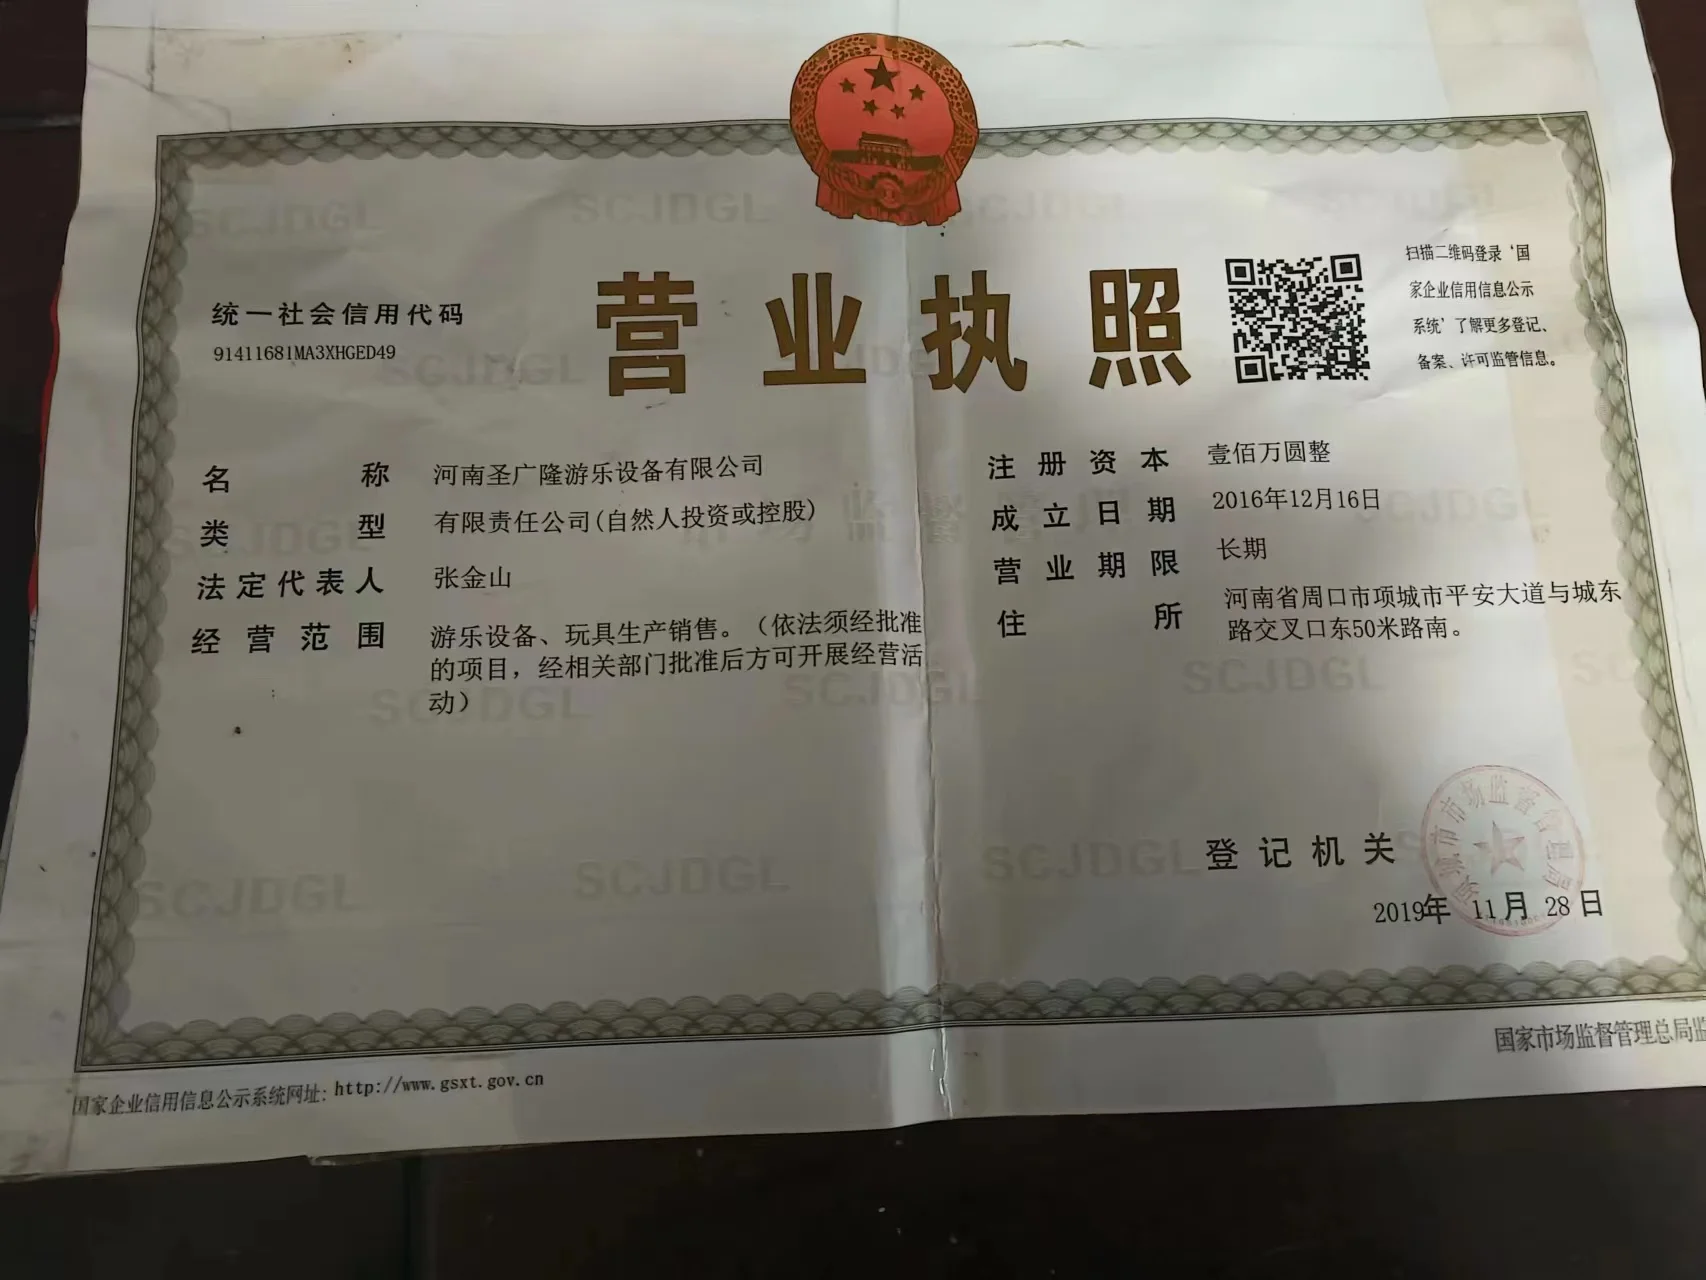 营业执照
统一社会信用代码
91411681MA3XHGED49
扫描二维码登录‘国
家企业信用信息公示
系统’了解更多登记、
备案、许可监管信息。
名称 河南圣广隆游乐设备有限公司
类型 有限责任公司(自然人投资或控股)
法定代表人 张金山
经营范围 游乐设备、玩具生产销售。（依法须经批准
的项目，经相关部门批准后方可开展经营活
动）
注册资本 壹佰万圆整
成立日期 2016年12月16日
营业期限 长期
住所 河南省周口市项城市平安大道与城东
路交叉口东50米路南。
登记机关
项城市市场监督管理局
2019年 11月 28日
国家企业信用信息公示系统网址: http://www.gsxt.gov.cn
国家市场监督管理总局监
SCJDGL